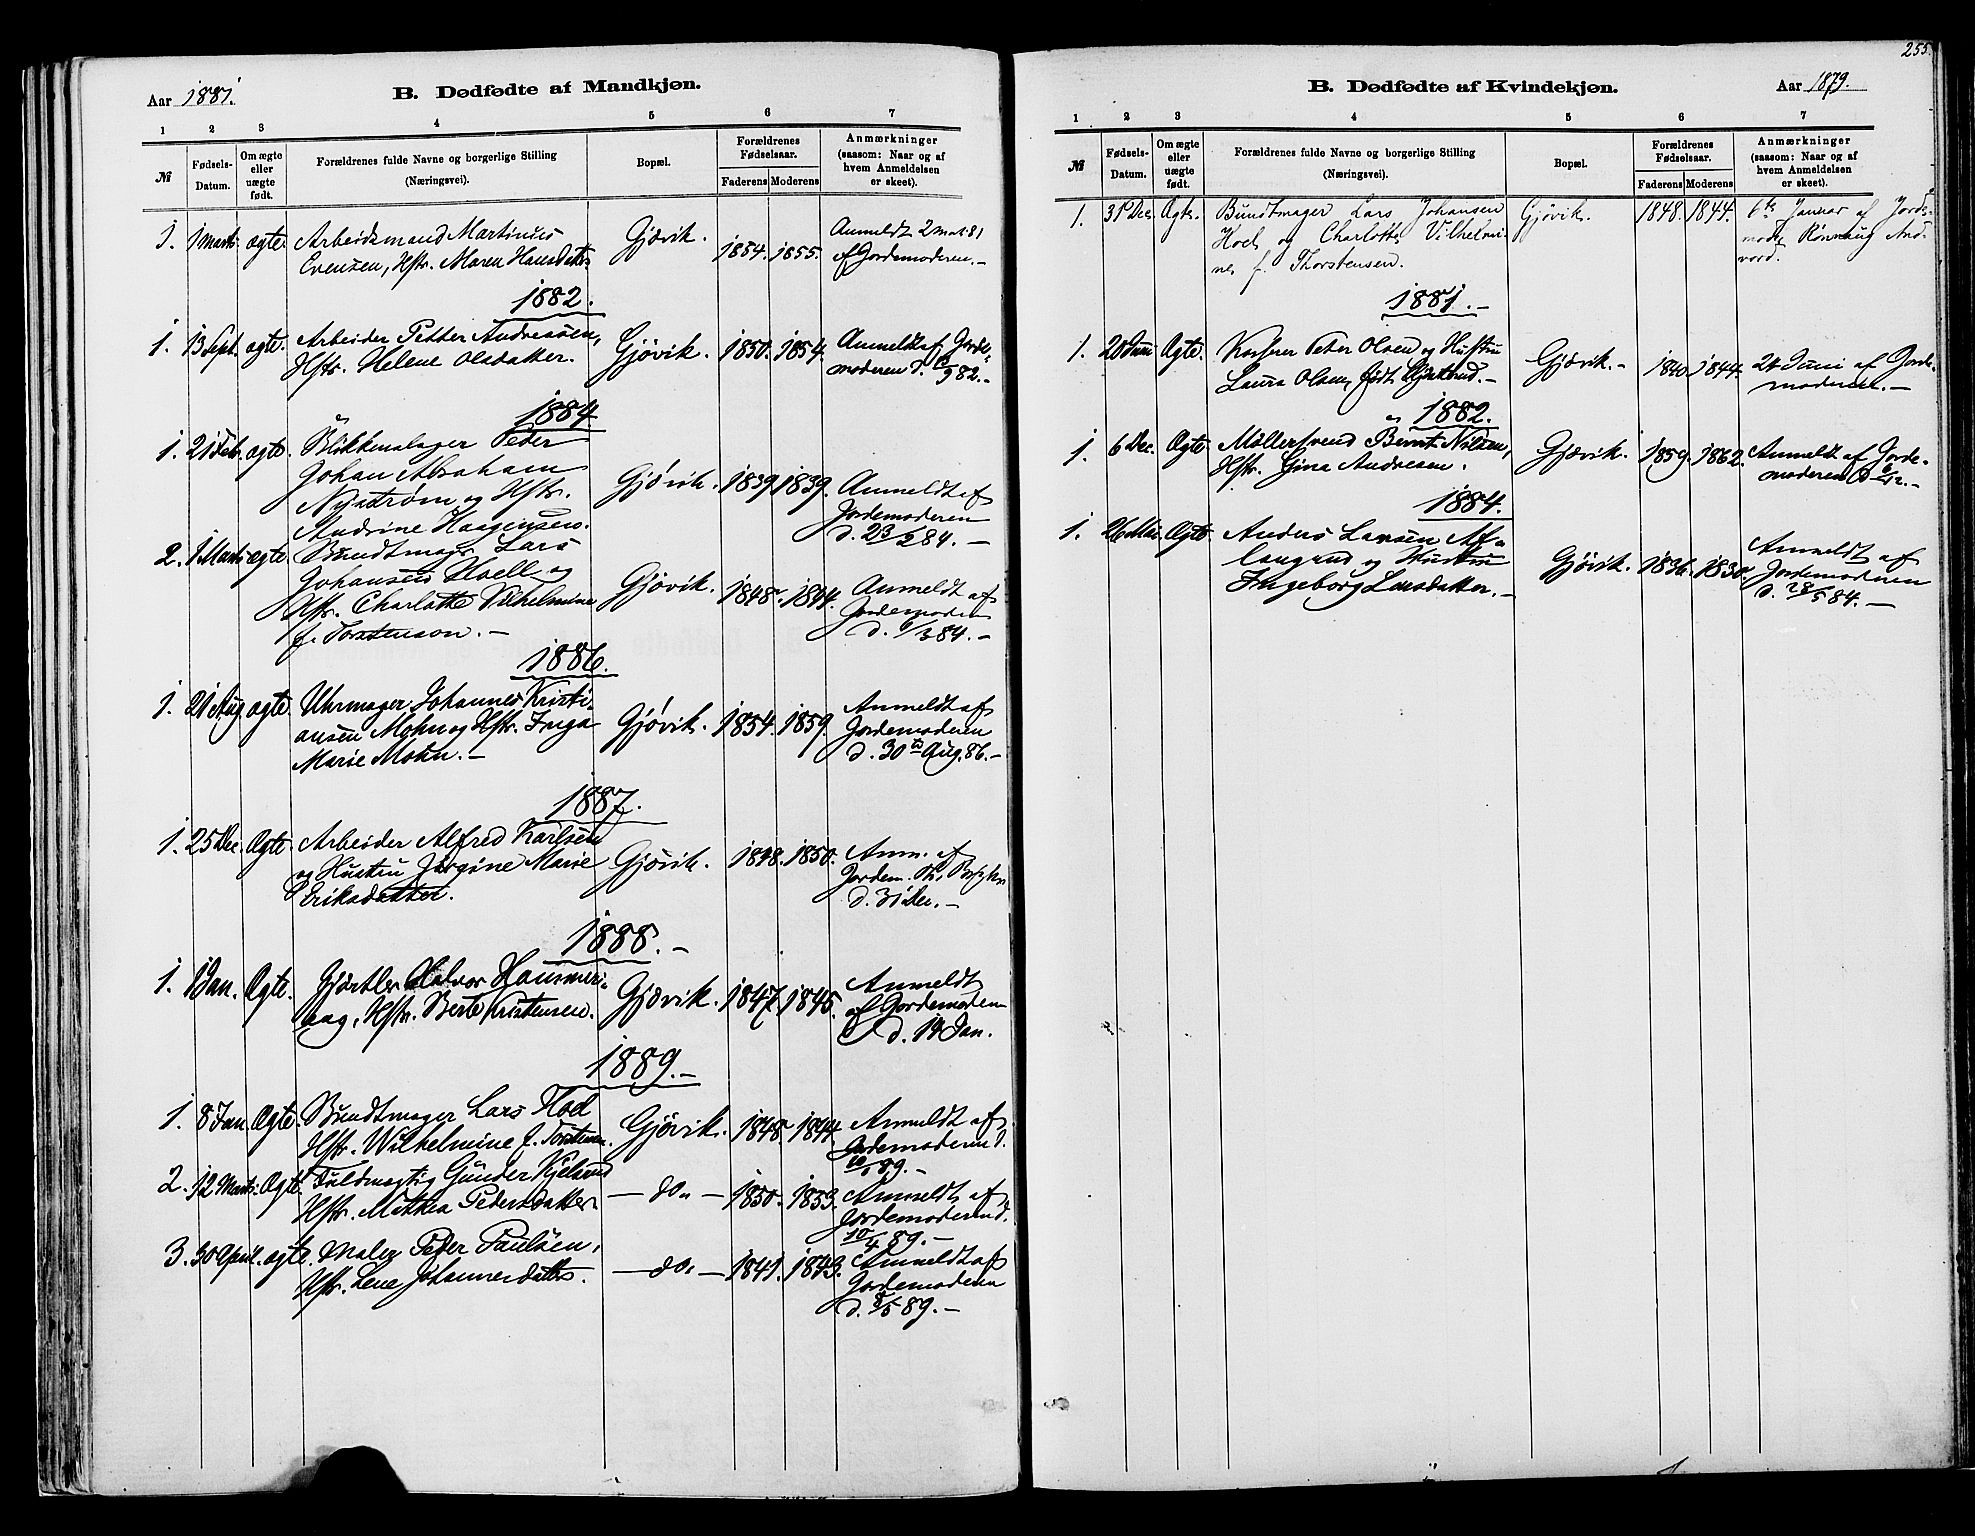 Aar 1881. B. Dødfødte af Mandkjøn.
1 2 3 4 5 6 7
№ Fødsels-Datum. Om ægte eller uægte født. Forældrenes fulde Navne og borgerlige Stilling (Næringsvei). Bopæl. Forældrenes Fødselsaar. Faderens Moderens Anmærkninger (saasom: Naar og af hvem Anmeldelsen er skeet).
1. 1 Marts ægte. Arbeidsmand Martinius Gjøvik. 1854. 1855. Anmeldt 2 Mar. 81
Evensen, Hstr. Maren Hansdatter af Jordemoderen.-
1882.
1. 13 Sept. ægte. Arbeider Petter Andresen, Gjøvik. 1850. 1854. Anmeldt af Jorde-
Hstr. Helene Olsdatter. moderen d. 982.-
1884
1. 21 Feb. ægte. Blikkenslager Peder
Johan Abraham Gjøvik. 1839 1839.
Nystrøm og Hstr. Anmeldt af
Andrine Haagensen. Jordemoderen
d. 23/2 84.-
2. 1 Marts ægte. Bundtmager Lars
Johansen Hoell og Gjøvik. 1848. 1844. Anmeldt af
Hstr. Charlotte Vilhelmine Jordemoderen
f. Torstenson.- d. 6/3 84.-
1886.
1. 21 Aug. ægte. Uhrmager Johannes Kristi- Gjøvik. 1854. 1859. Anmeldt af
ansen Mohn og Hstr. Inga Jordemoderen
Marie Mohn.- d. 30te Aug. 86.-
1887.
1. 25 Dec. Ægte Arbeider Alfred Karlsen Gjøvik. 1848. 1850. Anm. af
og Hustru Jørgine Marie Jordem. Th.
Eriksdatter. d. 31 Dec.-
1888.-
1. 1 Jan. Ægte. Gjørtler Halvor Hammer- Gjøvik. 1847. 1845. Anmeldt
aag, Hstr. Berte Kristensen. af Jordemoderen
d. 14 Jan.
1889.-
1. 8 Jan. Ægte. Bundtmager Lars Hoel Gjøvik. 1848 1844. Anmeldt af
Hstr. Wilhelmine f. Torstensen. Jordemoderen d.
10/1 89.-
2. 12 Marts. Ægte. Fuldmægtig Gunder Kjelsrud - do. - 1850. 1853. Anmeldt af
Hstr. Mathea Pedersdatter. Jordemoderen d.
10/4 89.-
3. 30 April. ægte. Maler Peder Paulsen, - do. - 1841. 1843. Anmeldt af
Hstr. Lene Johannesdatter. Jordemoderen
d. 8/5 89.-
255.
B. Dødfødte af Kvindekjøn. Aar 1879.
1 2 3 4 5 6 7
№ Fødsels-Datum. Om ægte eller uægte født. Forældrenes fulde Navne og borgerlige Stilling (Næringsvei). Bopæl. Forældrenes Fødselsaar. Faderens Moderens Anmærkninger (saasom: Naar og af hvem Anmeldelsen er skeet).
1. 31 Dec. Ægte. Bundtmager Lars Johansen Gjøvik. 1848. 1844. 6te Januar af Jorde-
Hoel og Charlotte Vilhelmi- moder Rønnaug And-
ne f. Thorstensen. vord.
1881.-
1. 20 Juni Ægte. Peter Olsen og Hustru Gjøvik.- 1840. 1844. 24 Juni af Jorde-
Laura Olsen, født. moderen.-
1882.
1. 6 Dec. Ægte Møllersvend Bernt Nilsen, Gjøvik. 1859. 1862. Anmeldt af Jorde-
Hstr. Gina Andresen. moderen d. 6/12.-
1884.
1. 26 Mai Ægte Anders Larsen Af- Anmeldt af
langrud og Hustru Gjøvik. 1836. 1830. Jordemoderen
Ingeborg Larsdatter.- d. 28/5 84.-